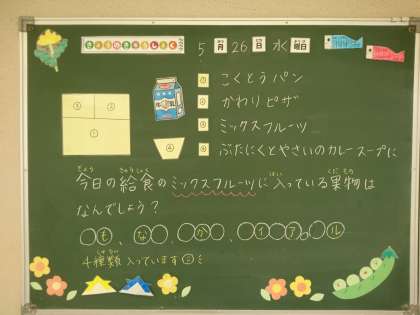 きょうのきゅうしょく
5月26日水曜日
① こくとうパン
② かわりピザ
③ ミックスフルーツ
④ ぶたにくとやさいのカレースープに
③ ②
①
④
今日の給食のミックスフルーツに入っている果物は
きょう きゅうしょく はい くだもの
なんでしょう?
○も、な○、○か○、○イ○ア○○ル
4種類入っています
しゅるい